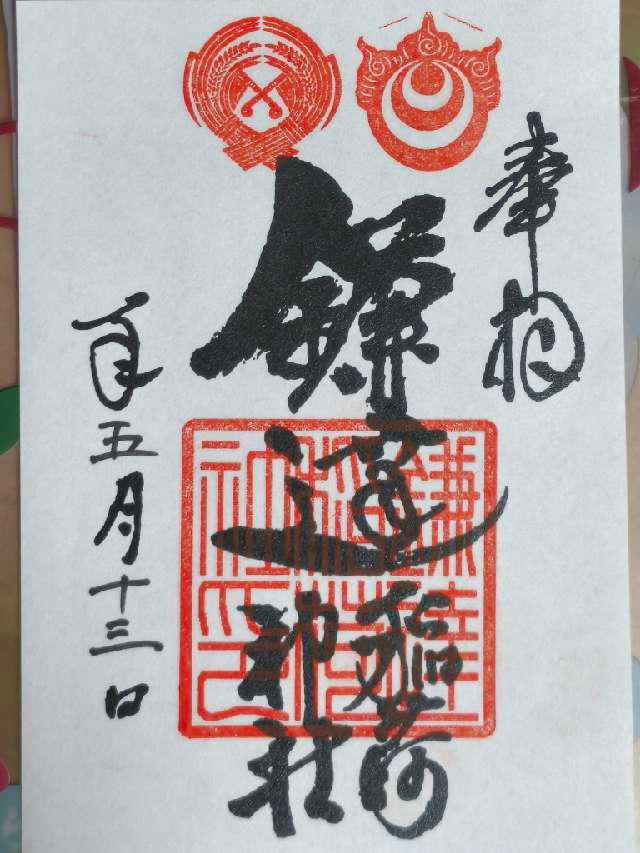 奉拝
鎌達稲荷
神社
年五月十三日
鎌達
稲荷
社印